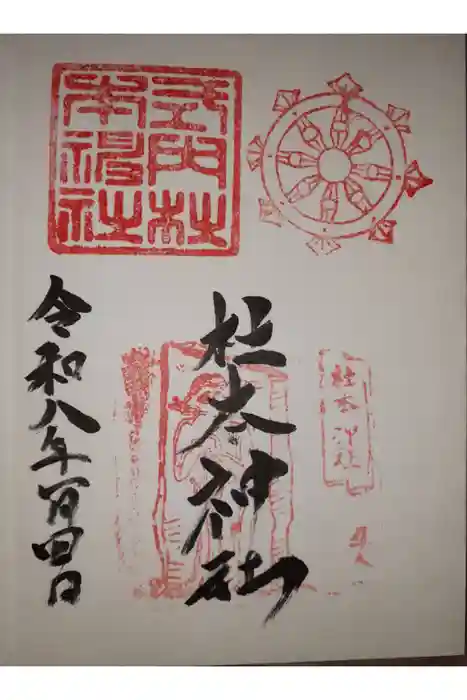 式内杜
本神社
杜本神社
杜本神社
令和八年一月四日